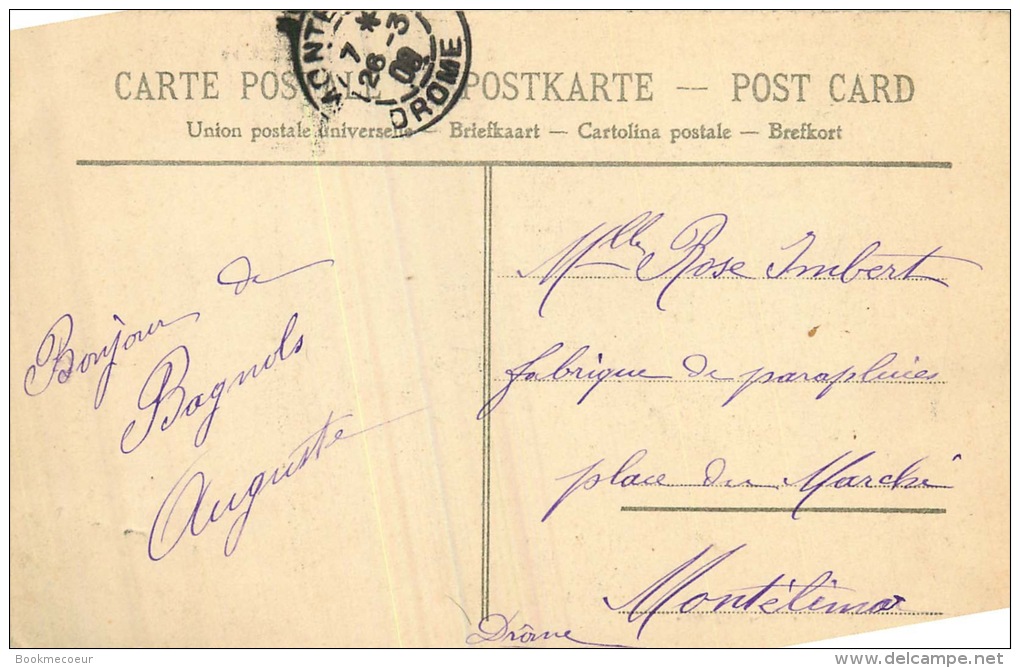 MONTE
7 *
26 -3
09
DROME
CARTE POSTALE — POSTKARTE — POST CARD
Union postale universelle — Briefkaart — Cartolina postale — Brefkort
Bonjour de
Bagnols
Auguste
Mlle Rose Imbert
fabrique de parapluies
place du Marché
Montélimar
Drôme
Bookmecoeur
www.delcampe.net